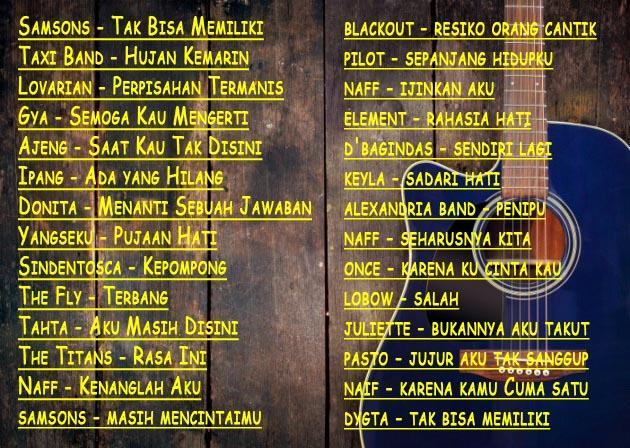 Samsons - Tak Bisa Memiliki
Taxi Band - Hujan Kemarin
Lovarian - Perpisahan Termanis
Gya - Semoga Kau Mengerti
Ajeng - Saat Kau Tak Disini
Ipang - Ada yang Hilang
Donita - Menanti Sebuah Jawaban
Yangseku - Pujaan Hati
Sindentosca - Kepompong
The Fly - Terbang
Tahta - Aku Masih Disini
The Titans - Rasa Ini
Naff - Kenanglah Aku
samsons - masih mencintaimu
blackout - resiko orang cantik
pilot - sepanjang hidupku
naff - ijinkan aku
element - rahasia hati
d'bagindas - sendiri lagi
keyla - sadari hati
alexandria band - penipu
naff - seharusnya kita
once - karena ku cinta kau
lobow - salah
juliette - bukannya aku takut
pasto - jujur aku tak sanggup
naif - karena kamu Cuma satu
dygta - tak bisa memiliki